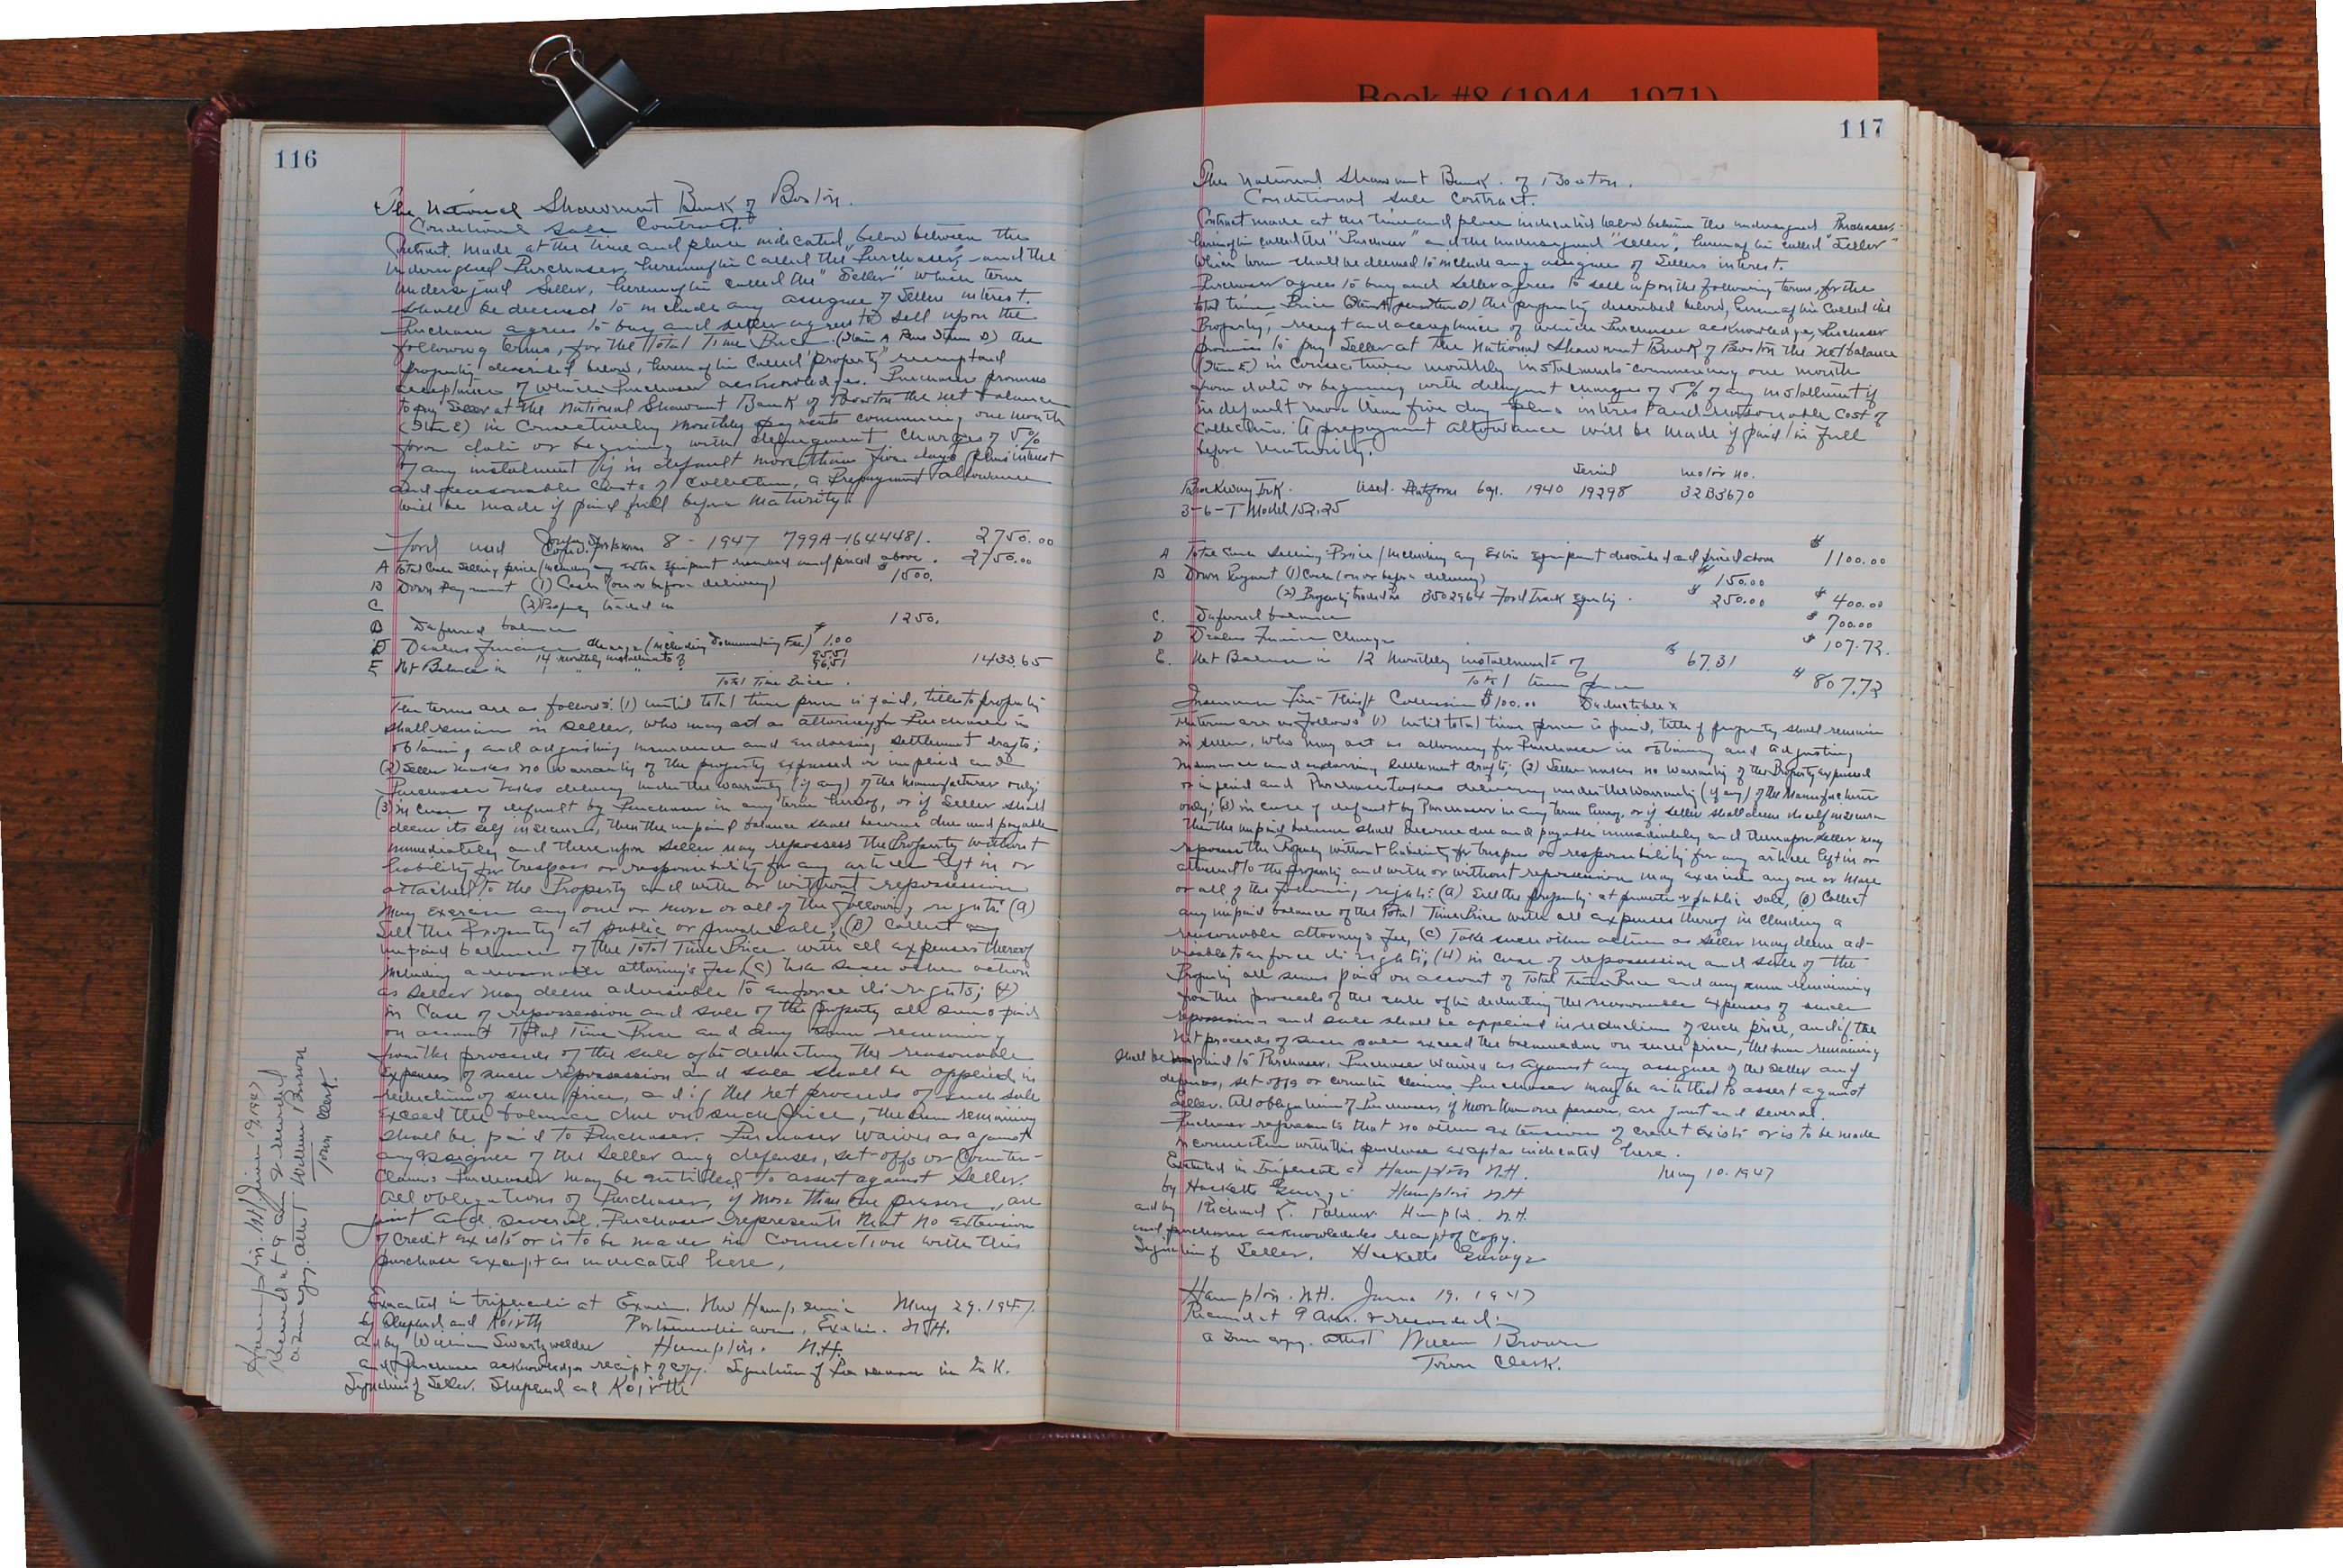 Book #8 (1944 - 1971)
116
The National Shawmut Bank of Boston.
Conditional Sale Contract.
Contract made at the time and place indicated below between the
undersigned Purchaser, hereinafter called the "Purchaser", and the
undersigned Seller, hereinafter called the "Seller" which term
shall be deemed to include any assignee of Sellers interest.
Purchaser agrees to buy and seller agrees to sell upon the
following terms, for the Total Time Price (Item A Plus Item D) the
property described below, hereinafter called "property" receipt and
acceptance of which Purchaser acknowledges. Purchaser promises
to pay Seller at the National Shawmut Bank of Boston the net balance
(Item E) in Consecutively monthly payments commencing one month
from date or beginning with delinquent charges of 5%
of any instalment if in default more than five days plus interest
and reasonable costs of Collection, a Prepayment allowance
will be made if paid full before maturity.
Ford used 8 - 1947 799A-1644481. 2750.00
A Total Cash Selling price (including any extra Equipment numbered and priced above. 2750.00
B Down Payment (1) Cash (on or before delivery) $1500.
C (2) Property traded in
D Deferred balance 1250.
D Dealers Finance charge (including Documentary Fee) $1.00
E Net Balance in 14 monthly installments of 95.51
1 " " " 96.51 1433.65
Total Time Price.
The terms are as follows: (1) until total time price is paid, title to property
shall remain in Seller, who may act as attorney for Purchaser in
obtaining and adjusting insurance and endorsing settlement drafts;
(2) Seller makes no warranty of the property expressed or implied and
Purchaser takes delivery under the Warranty (if any) of the Manufacturer only;
(3) in Case of default by Purchaser in any term hereof, or if Seller shall
deem its self insecure, then the unpaid balance shall become due and payable
immediately and thereupon Seller may repossess the Property without
liability for trespass or responsibility for any articles left in or
attached to the Property and with or without repossession
may exercise any one or more or all of the following rights: (a)
Sell the Property at public or private Sale; (B) Collect any
unpaid balance of the Total Time Price with all expenses thereof
including a reasonable attorney's fee, (C) take such other action
as Seller may deem advisable to enforce its rights; (4)
in Case of repossession and sale of the Property all sums paid
on account Total Time Price and any sum remaining
from the proceeds of the sale after deducting the reasonable
expenses of such repossession and sale shall be applied in
reduction of such price, and if the net proceeds of such sale
exceed the balance due on such price, the sum remaining
shall be paid to Purchaser. Purchaser waives as against
any assignee of the Seller any defenses, set-offs or Counter-
Claims Purchaser may be entitled to assert against Seller.
All obligations of Purchaser, if more than one person, are
joint and several. Purchaser represents that no extension
of credit exists or is to be made in Connection with this
purchase except as indicated here.
Executed in triplicate at Exeter. New Hampshire May 29. 1947.
by Shepherd and Exeter. N.H.
and by William Swartzwelder Hampton. N.H.
and Purchaser acknowledges receipt of copy. Signature of Purchaser in Ink.
Signature of Seller. Shepherd and
Hampton. N.H. June 19, 1947
Received at 9 am & recorded
a true copy. attest William Brown
Town Clerk.
117
The National Shawmut Bank of Boston.
Conditional Sale Contract.
Contract made at the time and place indicated below between the undersigned Purchaser,
hereinafter called the "Purchaser" and the undersigned "Seller", hereinafter called "Seller"
which term shall be deemed to include any assignee of Sellers interest.
Purchaser agrees to buy and Seller agrees to sell upon the following terms, for the
total time Price (Item A plus Item D) the property described below, hereinafter called the
Property, receipt and acceptance of which Purchaser acknowledges, Purchaser
promises to pay Seller at the National Shawmut Bank of Boston the net balance
(Item E) in Consecutive monthly instalments commencing one month
from date or beginning with delinquent charges of 5% of any installment if
in default more than five day plus interest and reasonable cost of
Collection. A prepayment allowance will be made if paid in full
before maturity.
Serial motor no.
Brockway Trk. Used. Platform 6cyl. 1940 19298 32B3670
3-6-T Model 152.25
A Total Cash Selling Price (including any Extra Equipment described and priced above $1100.00
B Down Payment (1) Cash (on or before delivery) $150.00
(2) Property traded in B502964 Ford Truck Equity. $250.00 $400.00
C. Deferred balance $700.00
D Dealers Finance Charge $107.72.
E. Net Balance in 12 Monthly installments of $67.31
Total time price $807.72
Insurance Fire-Theft Collision $100.00 Deductible x
The terms are as follows (1) until total time price is paid, title of property shall remain
in seller, who may act as attorney for Purchaser in obtaining and adjusting
insurance and endorsing settlement drafts; (2) Seller makes no warranty of the Property expressed
or implied and Purchaser takes delivery under the Warranty (if any) of the Manufacturer
only; (3) in case of default by Purchaser in any term hereof, or if seller shall deem itself insecure
then the unpaid balance shall become due and payable immediately and thereupon Seller may
repossess the Property without liability for trespass or responsibility for any articles left in or
attached to the property and with or without repossession may exercise any one or more
or all of the following rights: (a) Sell the property at private or public sale, (b) Collect
any unpaid balance of the Total Time Price with all expenses thereof including a
reasonable attorney's fee, (c) Take such other action as Seller may deem ad-
visable to enforce its rights; (4) in case of repossession and sale of the
Property all sums paid on account of Total Time Price and any sum remaining
from the proceeds of the sale after deducting the reasonable expenses of such
repossession and sale shall be applied in reduction of such price, and if the
net proceeds of such sale exceed the balance due on such price, the sum remaining
shall be paid to Purchaser. Purchaser waives as against any assignee of the Seller any
defenses, set-offs or counter claims Purchaser may be entitled to assert against
Seller. All obligations of Purchaser, if more than one person, are joint and several.
Purchaser represents that no other extension of credit exists or is to be made
in connection with this purchase except as indicated here.
Executed in triplicate at Hampton N.H. May 10. 1947
by Hacketts Garage Hampton N.H
and by Richard K. Palmer. Hampton. N.H.
and purchaser acknowledges receipt of Copy.
Signature of Seller. Hacketts Garage
Hampton. N.H. June 19. 1947
Received at 9 A.m. & recorded
a true copy. attest William Brown
Town Clerk.